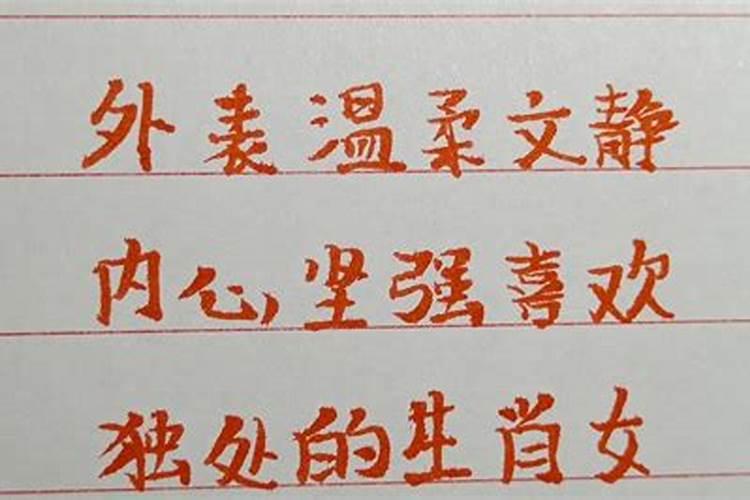 外表温柔文静
内心坚强喜欢
独处的生肖女